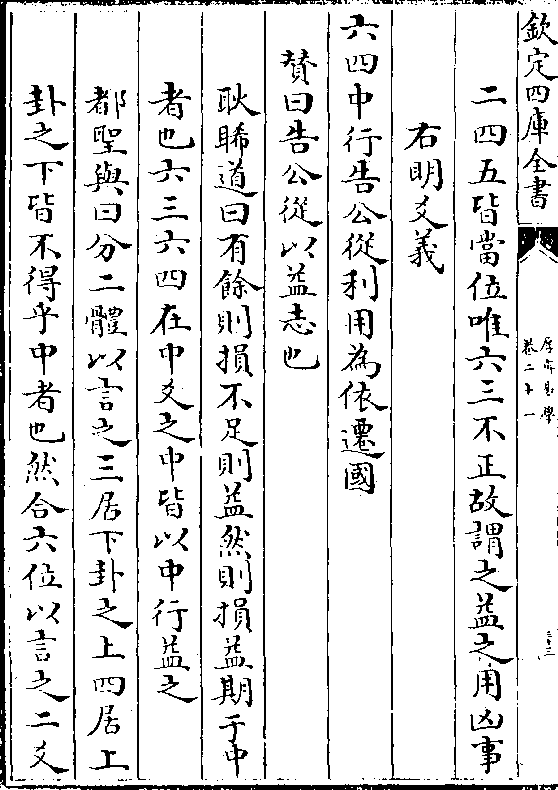 欽定四庫全書
厚齋易學
卷二十一
三十三
二四五皆當位唯六三不正故謂之益之用凶事
右明爻義
六四中行告公從利用為依遷國
賛曰告公從以益志也
耿睎道曰有餘則損不足則益然則損益期于中
者也六三六四在中爻之中皆以中行益之
都聖與曰分二體以言之三居下卦之上四居上
卦之下皆不得乎中者也然合六位以言之二爻